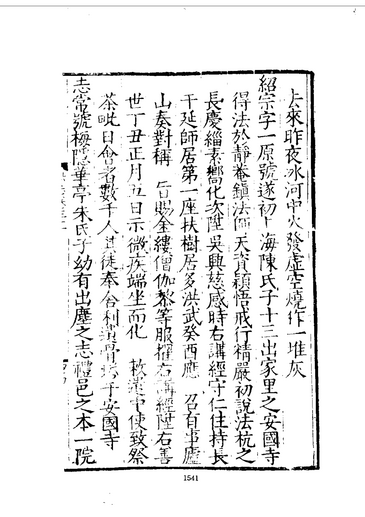 去來昨夜冰河中火發虛空燒作一堆灰
紹宗字一原號遂初上海陳氏子十三出家里之安國寺
得法於靜菴鎮法師天資穎悟戒行精嚴初說法杭之
長慶緇素嚮化次陞吳興慈感時右講經守仁住持長
干延師居第一座扶樹居多洪武癸酉應 召百事廬
山奏對稱 旨賜金縷僧伽黎等服擢右講經陞右善
世丁丑正月五日示微疾端坐而化 敕 中使致祭
茶毗日會者數千人其徒奉舍利遺骨塔于安國寺
志常號梅隱華亭朱氏子幼有出塵之志禮邑之本一院
1541